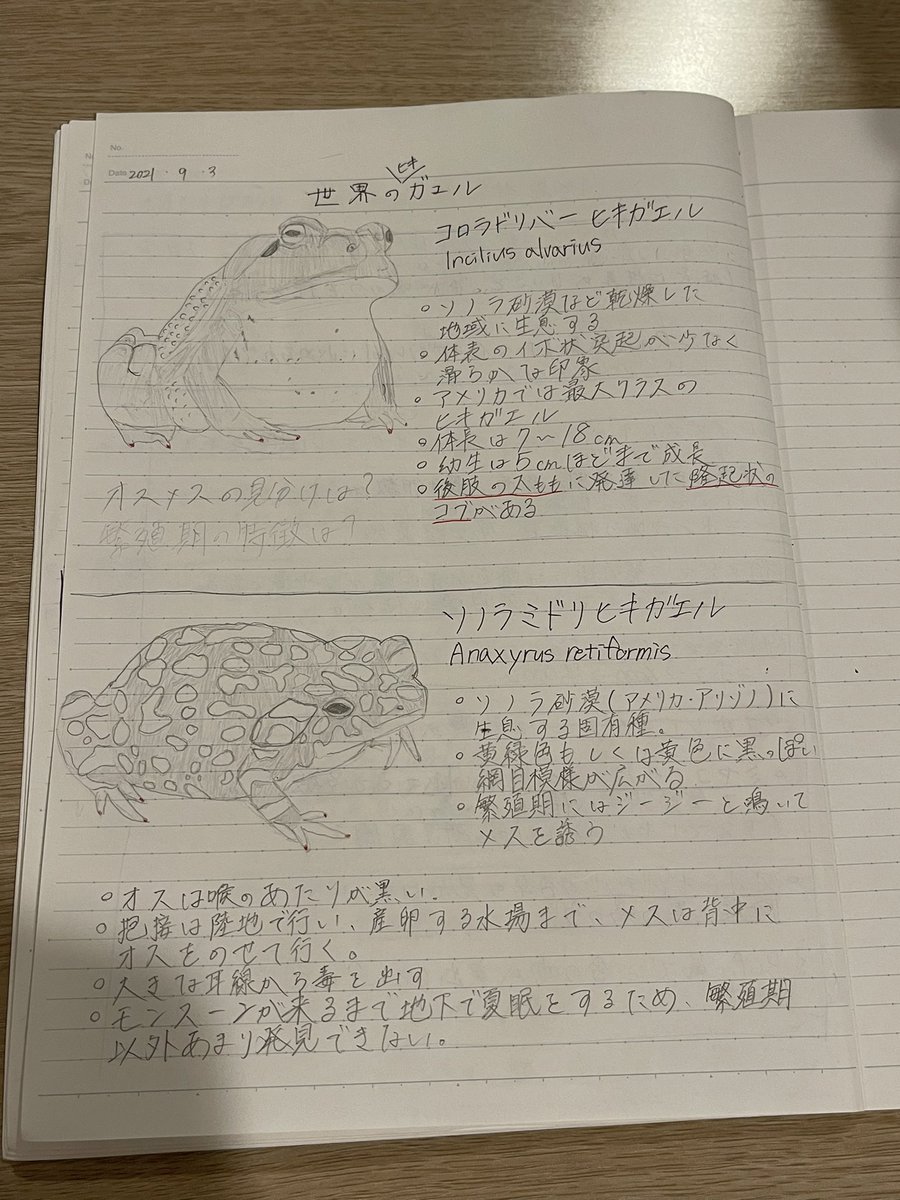 No.
Date 2021・9・3
世界のヒキガエル
コロラドリバーヒキガエル
Incilius alvarius
○ソノラ砂漠など乾燥した
地域に生息する
○体表のイボ状突起が少なく
滑らかな印象
○アメリカでは最大クラスの
ヒキガエル
○体長は7〜18cm
○幼生は5cmほどまで成長
○後肢の太ももに発達した隆起状の
コブがある
オスメスの見分けは?
繁殖期の特徴は?
ソノラミドリヒキガエル
Anaxyrus retiformis
○ソノラ砂漠(アメリカ・アリゾノ)に
生息する固有種。
○黄緑色もしくは黄色に黒っぽい
網目模様が広がる
○繁殖期にはジージーと鳴いて
メスを誘う
○オスは喉のあたりが黒い.
○抱接は陸地で行い、産卵する水場まで、メスは背中に
オスをのせて行く。
○大きな耳線から毒を出す
○モンスーンが来るまで地下で夏眠をするため、繁殖期
以外あまり発見できない。